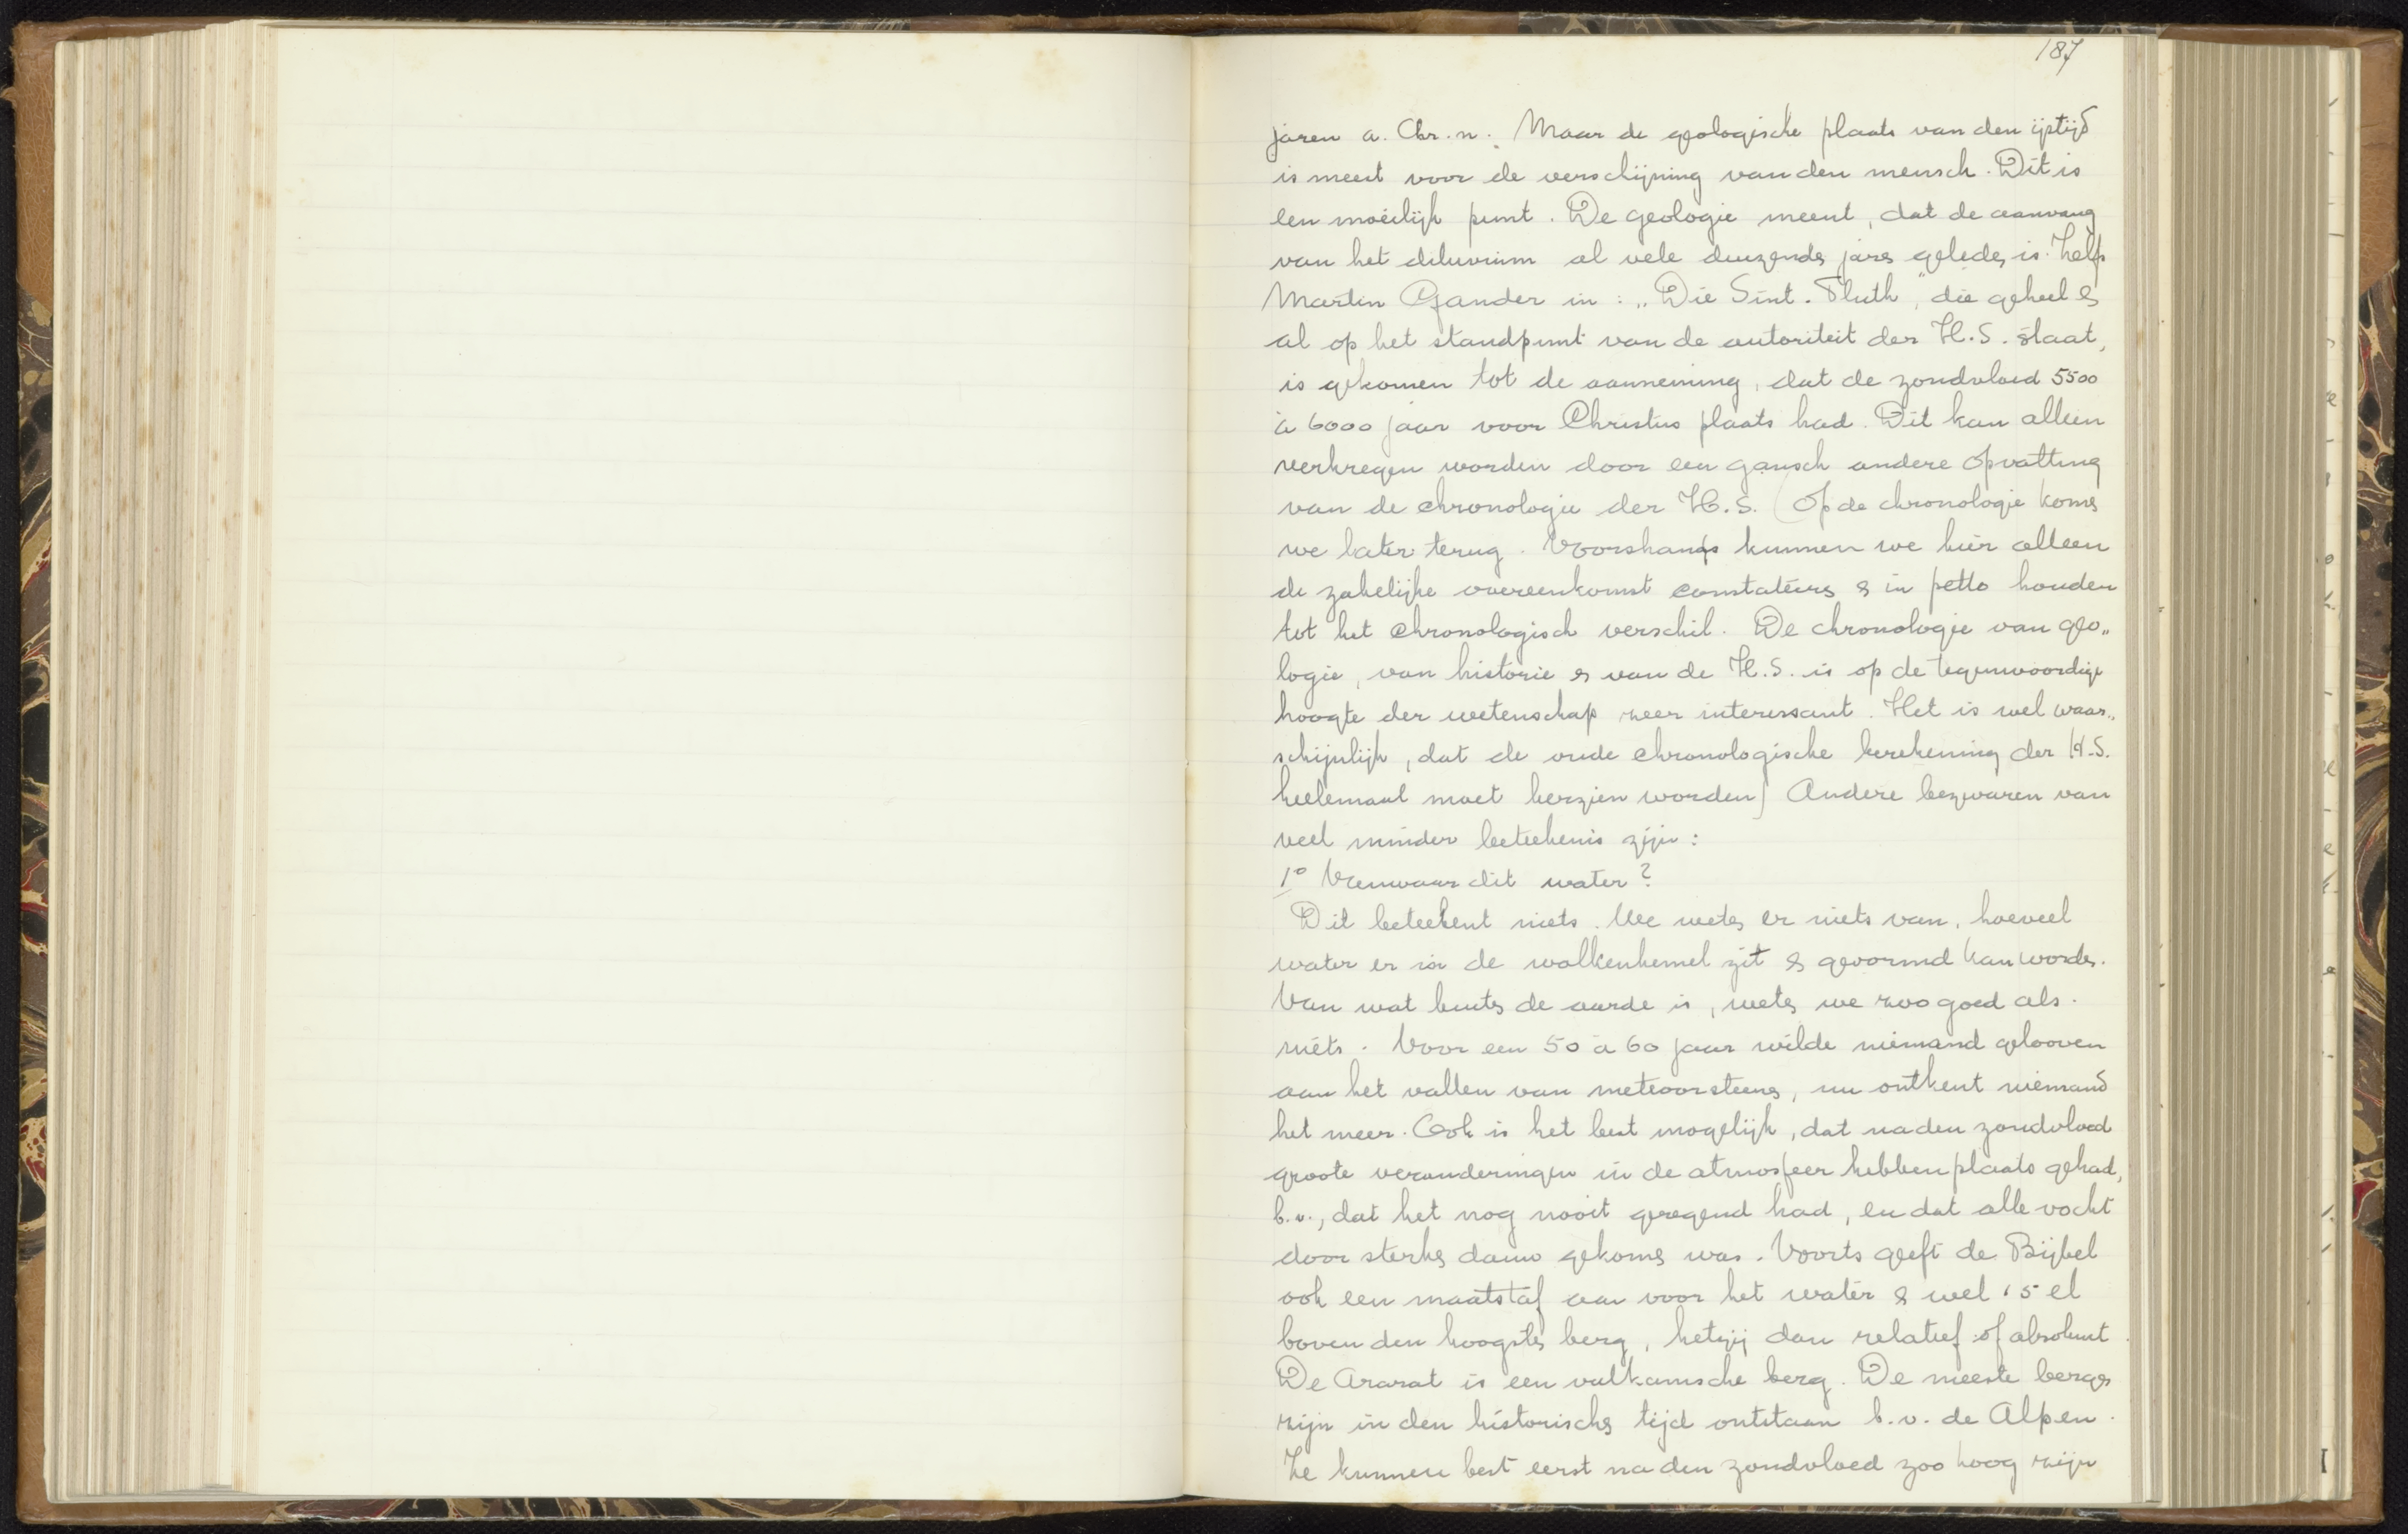 187
jaren a. Chr. n. Maar de geologische plaats van den ijstijd
is meest voor de verschijning van den mensch. Dit is
een moeilijk punt. De geologie meent, dat de aanvang
van het diluvium al vele duizenden jaren geleden is. Zelfs
Martin Gander in: „Die Sint-Fluth", die geheel en
al op het standpunt van de autoriteit der H.S. staat,
is gekomen tot de aanneming, dat de zondvloed 5500
à 6000 jaar voor Christus plaats had. Dit kan alleen
verkregen worden door een gansch andere opvatting
van de chronologie der H.S. (Op de chronologie komen
we later terug. Voorshands kunnen we hier alleen
de zakelijke overeenkomst constateeren en in petto houden
tot het chronologisch verschil. De chronologie van geo„
logie, van historie en van de H.S. is op de tegenwoordige
hoogte der wetenschap zeer interessant. Het is wel waar„
schijnlijk, dat de oude chronologische berekening der H.S.
heelemaal moet herzien worden) Andere bezwaren van
veel minder beteekenis zijn:
1o Vanwaar dit water?
Dit beteekent niets. We weten er niets van, hoeveel
water er in de wolkenhemel zit en gevormd kan worden.
Van wat buiten de aarde is, weten we zoo goed als
niets. Voor een 50 à 60 jaar wilde niemand gelooven
aan het vallen van meteoorsteenen, nu ontkent niemand
het meer. Ook is het best mogelijk, dat na den zondvloed
groote veranderingen in de atmosfeer hebben plaats gehad,
b.v., dat het nog nooit geregend had, en dat alle vocht
door sterken dauw gekomen was. Voorts geeft de Bijbel
ook een maatstaf aan voor het water en wel 15 el
boven den hoogsten berg, hetzij dan relatief of absoluut.
De Ararat is een vulkanische berg. De meeste bergen
zijn in den historischen tijd ontstaan b.v. de Alpen.
Ze kunnen best eerst na den zondvloed zoo hoog zijn